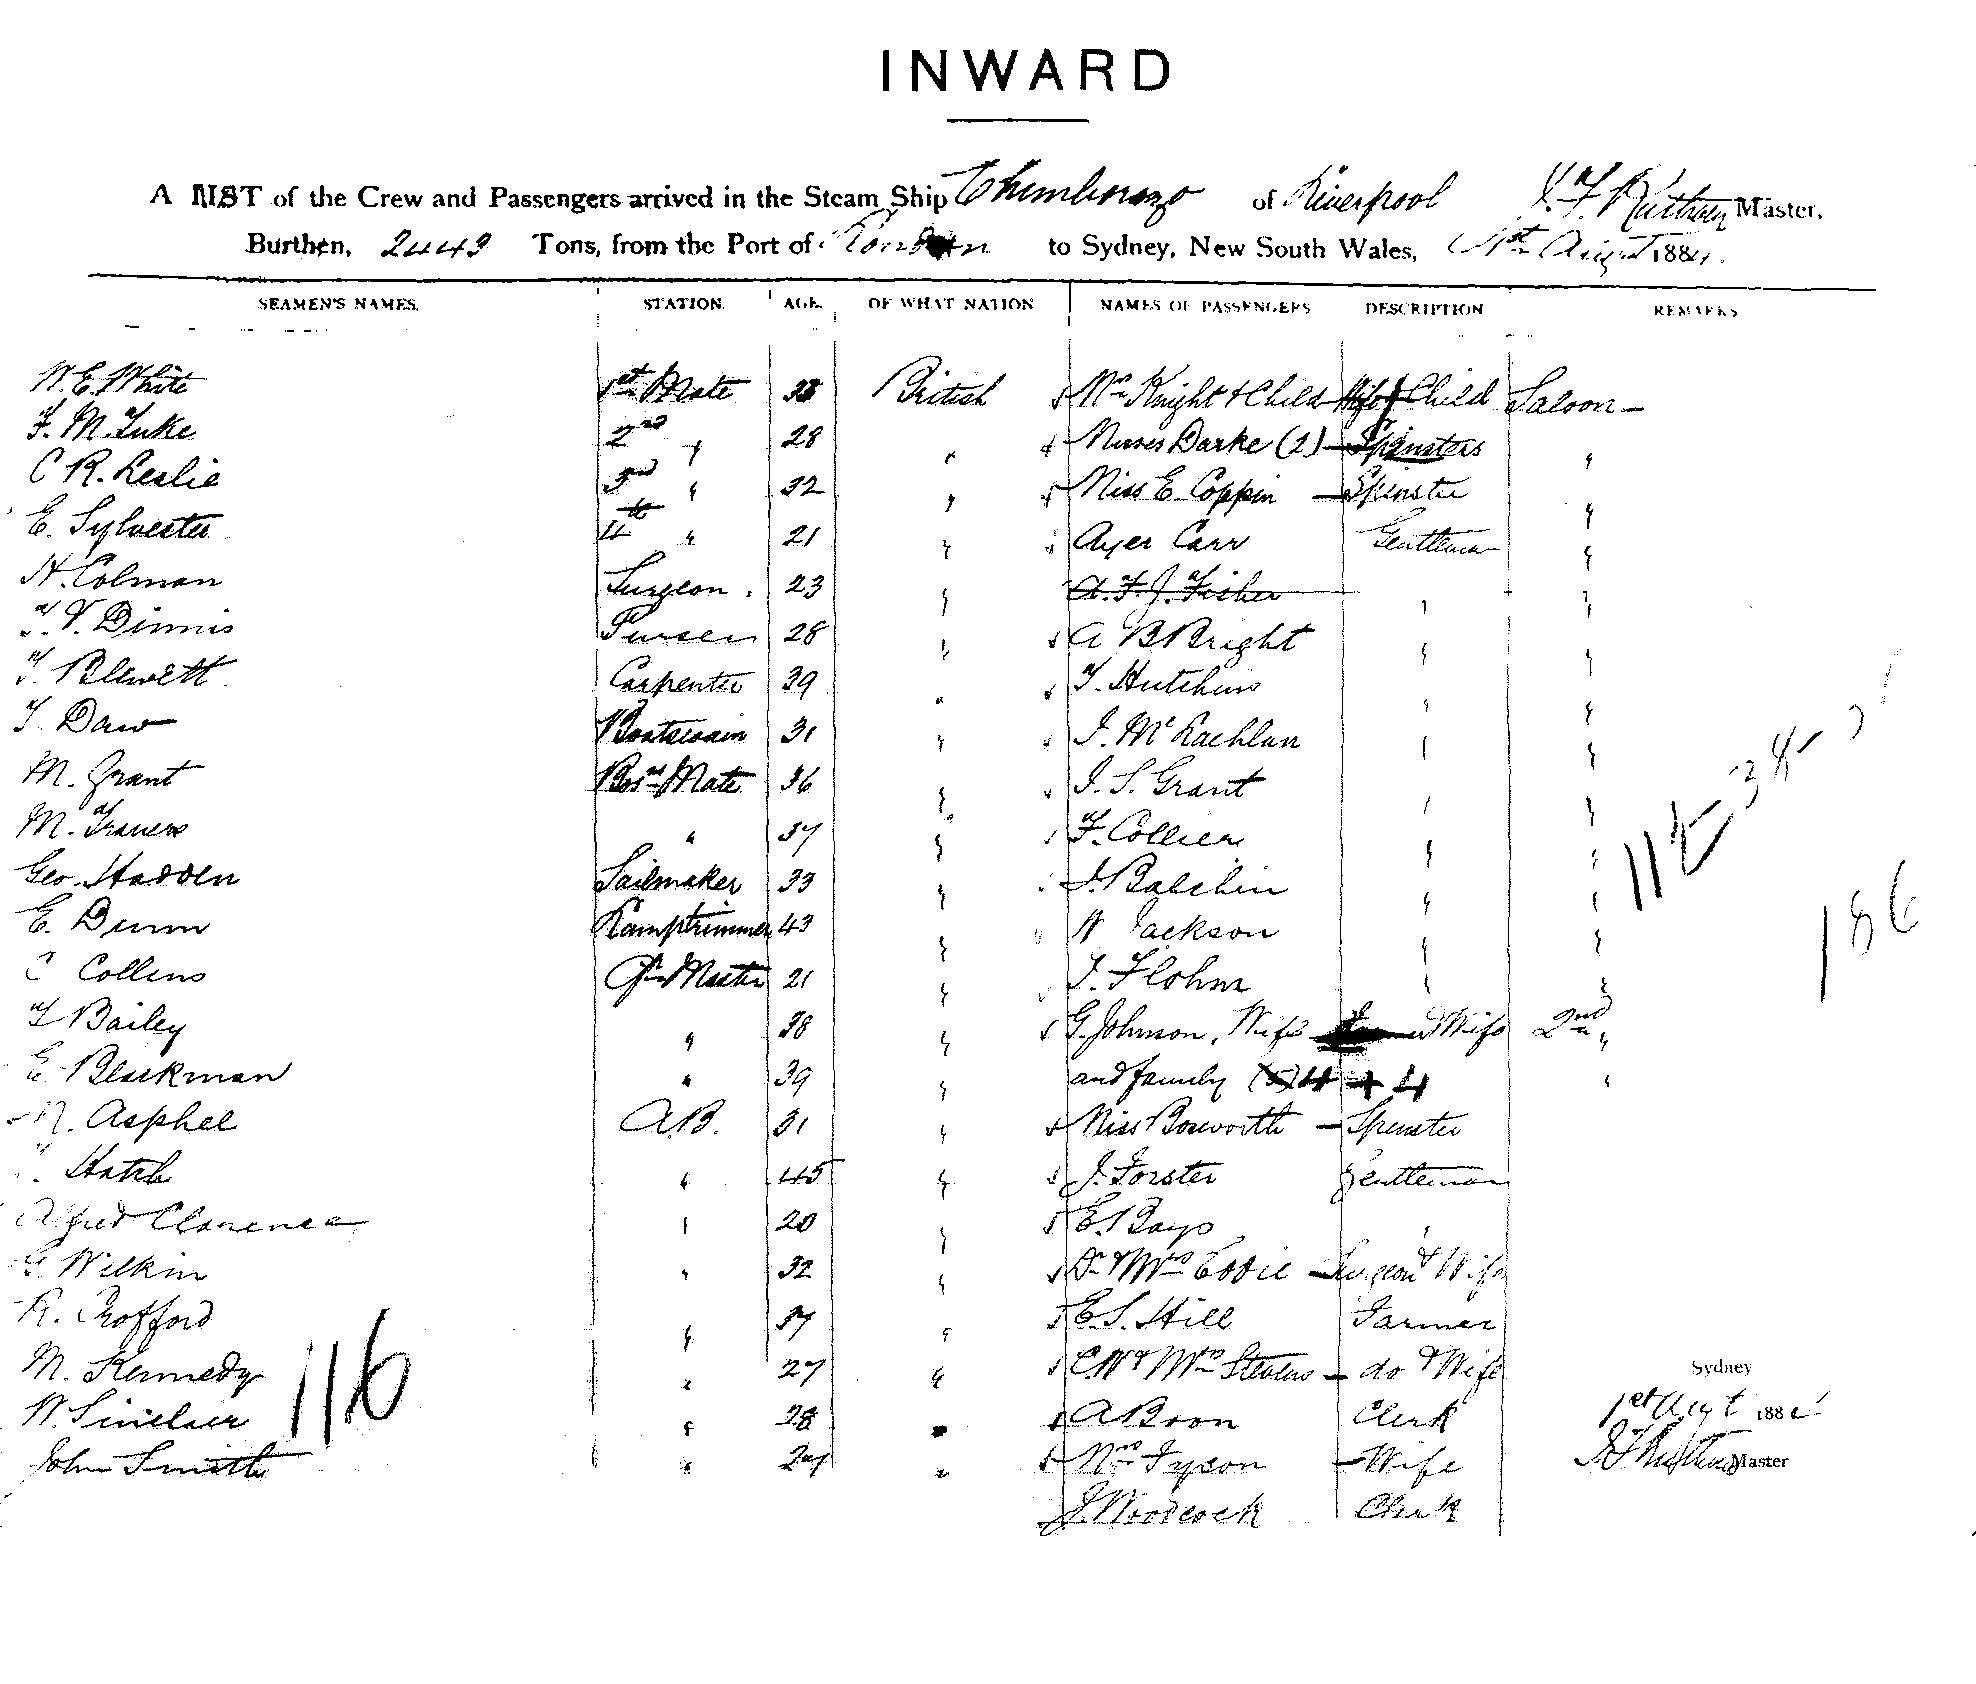 INWARD
A LIST of the Crew and Passengers arrived in the Steam Ship Chimborazo of Liverpool J. F. Ruthven Master,
Burthen, 2443 Tons, from the Port of London to Sydney, New South Wales, 1st August 1884.
SEAMEN'S NAMES. STATION. AGE. OF WHAT NATION NAMES OF PASSENGERS DESCRIPTION REMARKS
W. E. White 1st Mate British Mrs Knight & Child Wife & Child Saloon
F. M. Tuke 2nd " 28 " Misses Darke (2) Spinsters "
C R. Leslie 3rd " 32 " Miss E. Coppin Spinster "
E. Sylvester 4th " 21 " Ayer Carr Gentleman "
H. Colman Surgeon 23 " A. F. J. Fisher " "
T. V. Dinnis Purser 28 " A B Bright " "
T. Blewett Carpenter 39 " T. Hutchins " "
T. Daw Boatswain 31 " J. McLachlan " "
M. Grant Bosns Mate 36 " J. S. Grant " "
M. Travers " 37 " F. Collier " "
Geo. Hadden Sailmaker 33 " J. Balchin " "
E. Dunn Lamptrimmer 43 " W Jackson " "
C Collins Qr Master 21 " J. Flohm " "
T Bailey " 38 " G. Johnson, Wife & Wife 2nd "
E. Blackman " 39 " and family (5) 4 + 4 "
Asphel A.B. 31 " Miss Bosworth Spinster
Hatch " 45 " J. Forster Gentleman
Alfred Clarence " 20 " E. Bays "
G. Wilkin " 32 " Dr & Mrs Eddie Surgeon & Wife
R. Crofford " 37 " E. S. Hill Farmer
M. Kennedy " 27 " C W & Mrs Stevens do & Wife
W. Sinclair " 28 " A Boon Clerk
John Smith " 27 " Mrs Tyson Wife
J. Woodcock Clerk
116
112
186
Sydney
1st Augt 1884
J F Ruthven Master